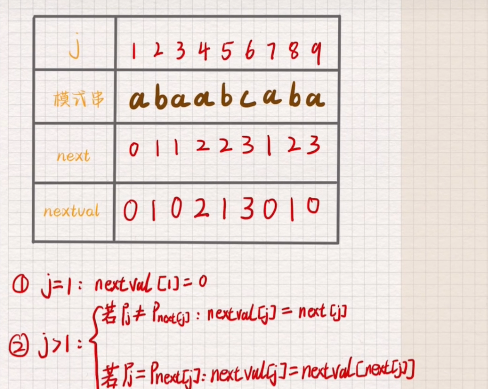 j 1 2 3 4 5 6 7 8 9
模式串 a b a a b c a b a
next 0 1 1 2 2 3 1 2 3
nextval 0 1 0 2 1 3 0 1 0
① j=1: nextval[1]=0
② j>1: { 若Pj≠Pnext[j]: nextval[j]=next[j]
若Pj=Pnext[j]: nextval[j]=nextval[next[j]]